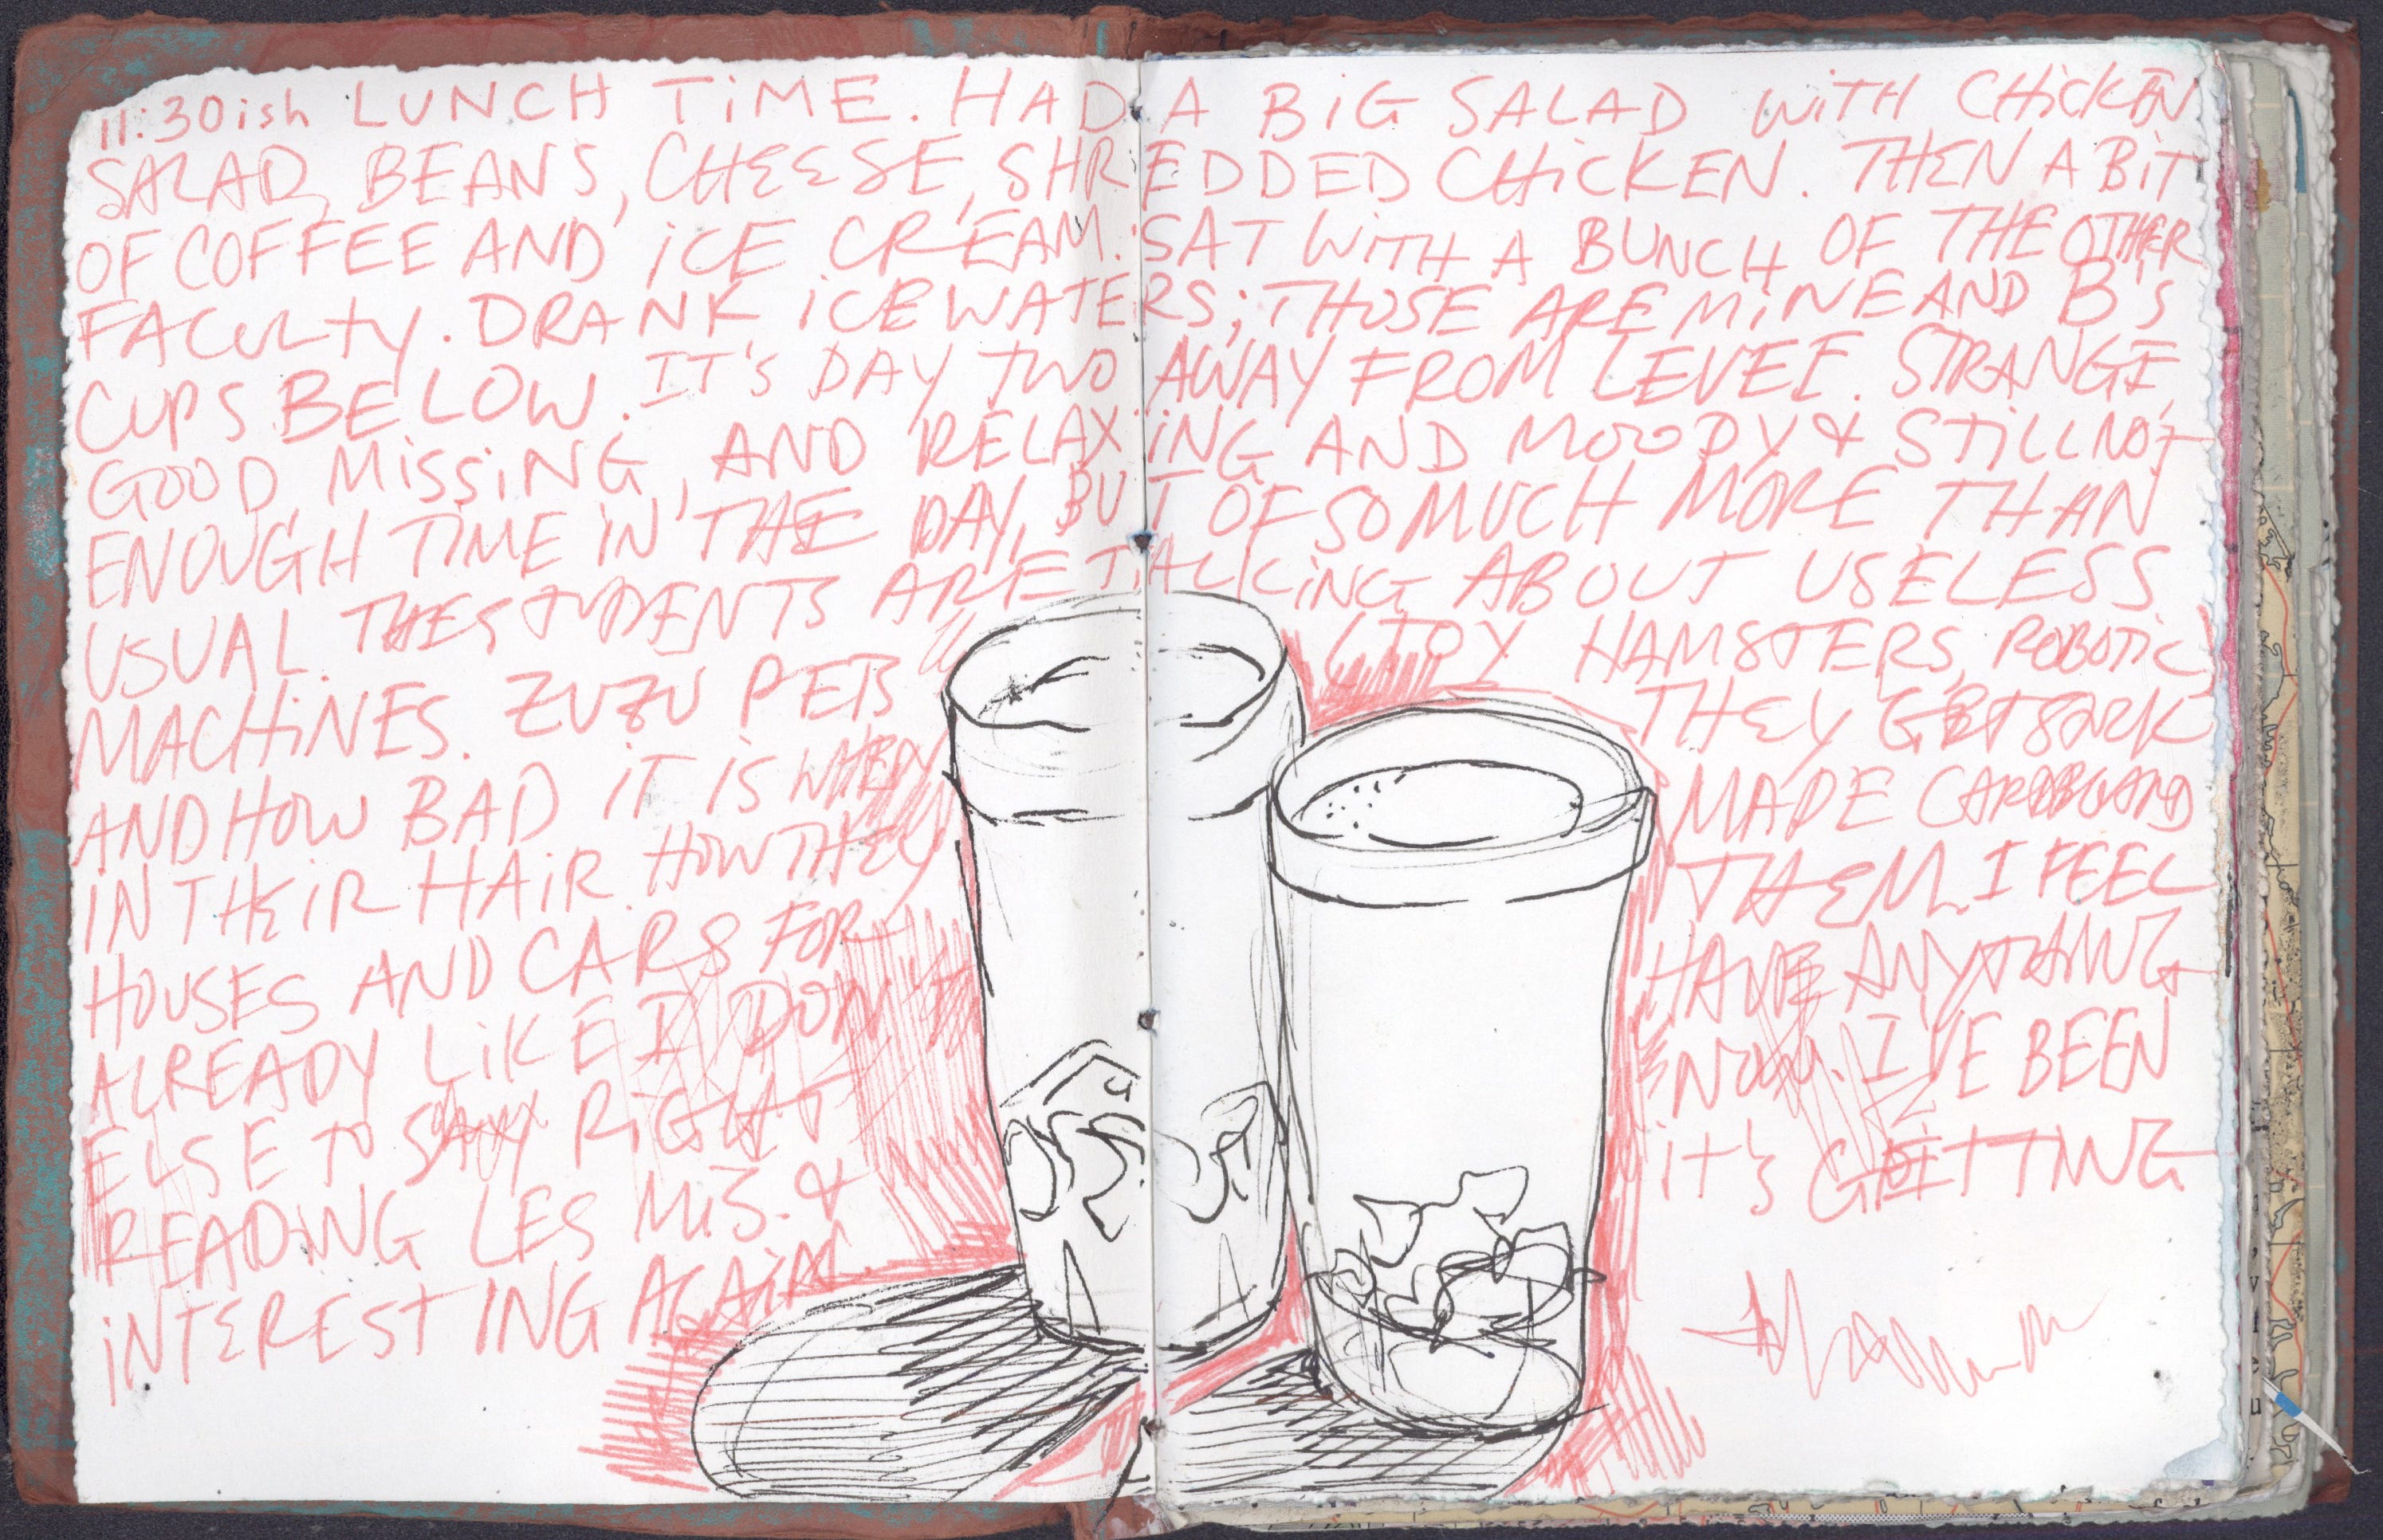 11:30ish LUNCH TiME. HAD A BiG SALAD WiTH CHiCKEN
SALAD, BEANS, CHEESE, SHREDDED CHiCKEN. THEN A BiT
OF COFFEE AND iCE CREAM. SAT WiTH A BUNCH OF THE OTHER
FACULTY. DRANK iCE WATERS; THOSE ARE MiNE AND B'S
CUPS BELOW. IT'S DAY TWO AWAY FROM LEVEE. STRANGE,
GOOD, MiSSiNG, AND RELAXiNG AND MOODY & STiLL NOT
ENOUGH TiME IN THE DAY, BUT OF SO MUCH MORE THAN
USUAL. THE STUDENTS ARE TALKiNG ABOUT USELESS
MACHiNES. ZUZU PETS (TOY HAMSTERS, ROBOTiC)
AND HOW BAD iT iS WHEN THEY GET STUCK
IN THEiR HAiR. HOW THEY MADE CARDBOARD
HOUSES AND CARS FOR THEM. I FEEL
ALREADY LiKE I DON'T HAVE ANYTHING
ELSE TO SAY RiGHT NOW. I'VE BEEN
READiNG LES MiS. & iT'S GETTiNG
iNTEREST ING AGAiN.